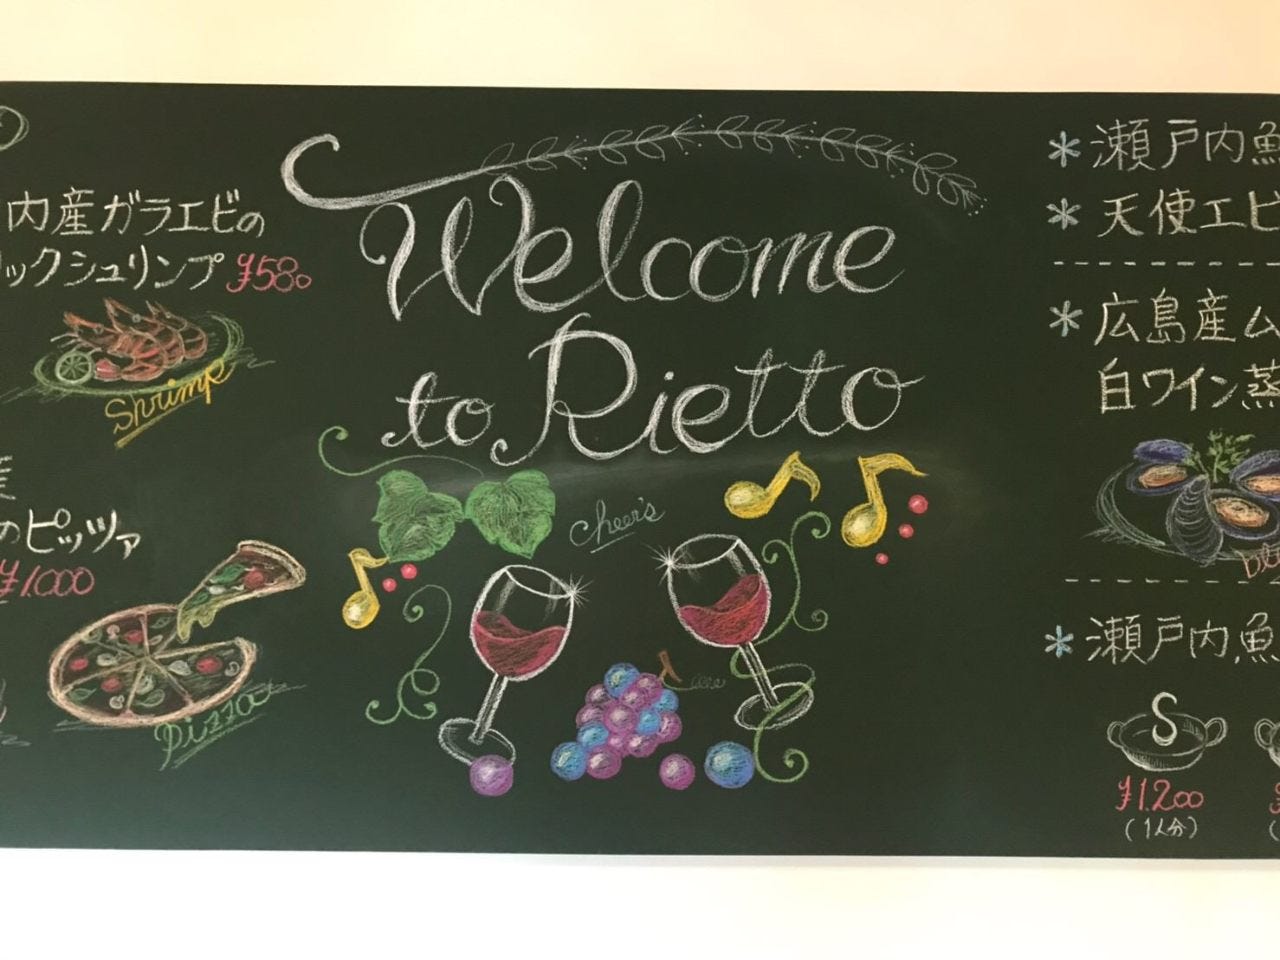 内産ガラエビの
リックシュリンプ ¥580
Shrimp
のピッツァ
¥1000
Pizza
Welcome
to Rietto
cheer's
* 瀬戸内魚
* 天使エビ
* 広島産ム
白ワイン蒸
* 瀬戸内魚
S
¥1.200
(1人分)